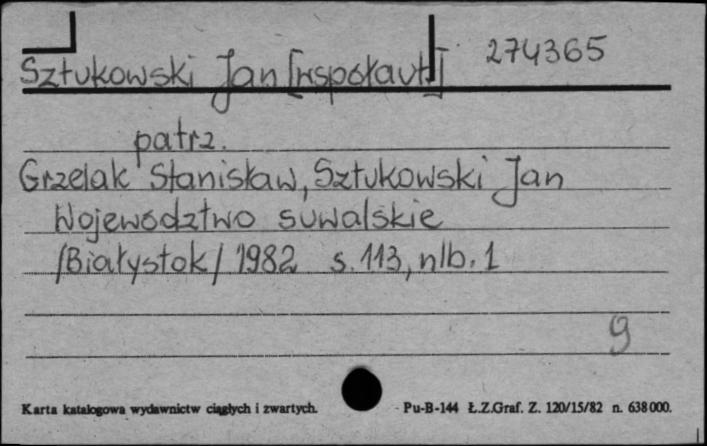 Sztukowski Jan [współaut.] 274365
patrz.
Grzelak Stanisław, Sztukowski Jan
Województwo suwalskie
/Białystok/ 1982 s. 113, nlb. 1
9
Karta katalogowa wydawnictw ciągłych i zwartych. Pu-B-144 Ł.Z.Graf. Z. 120/15/82 n. 638000.